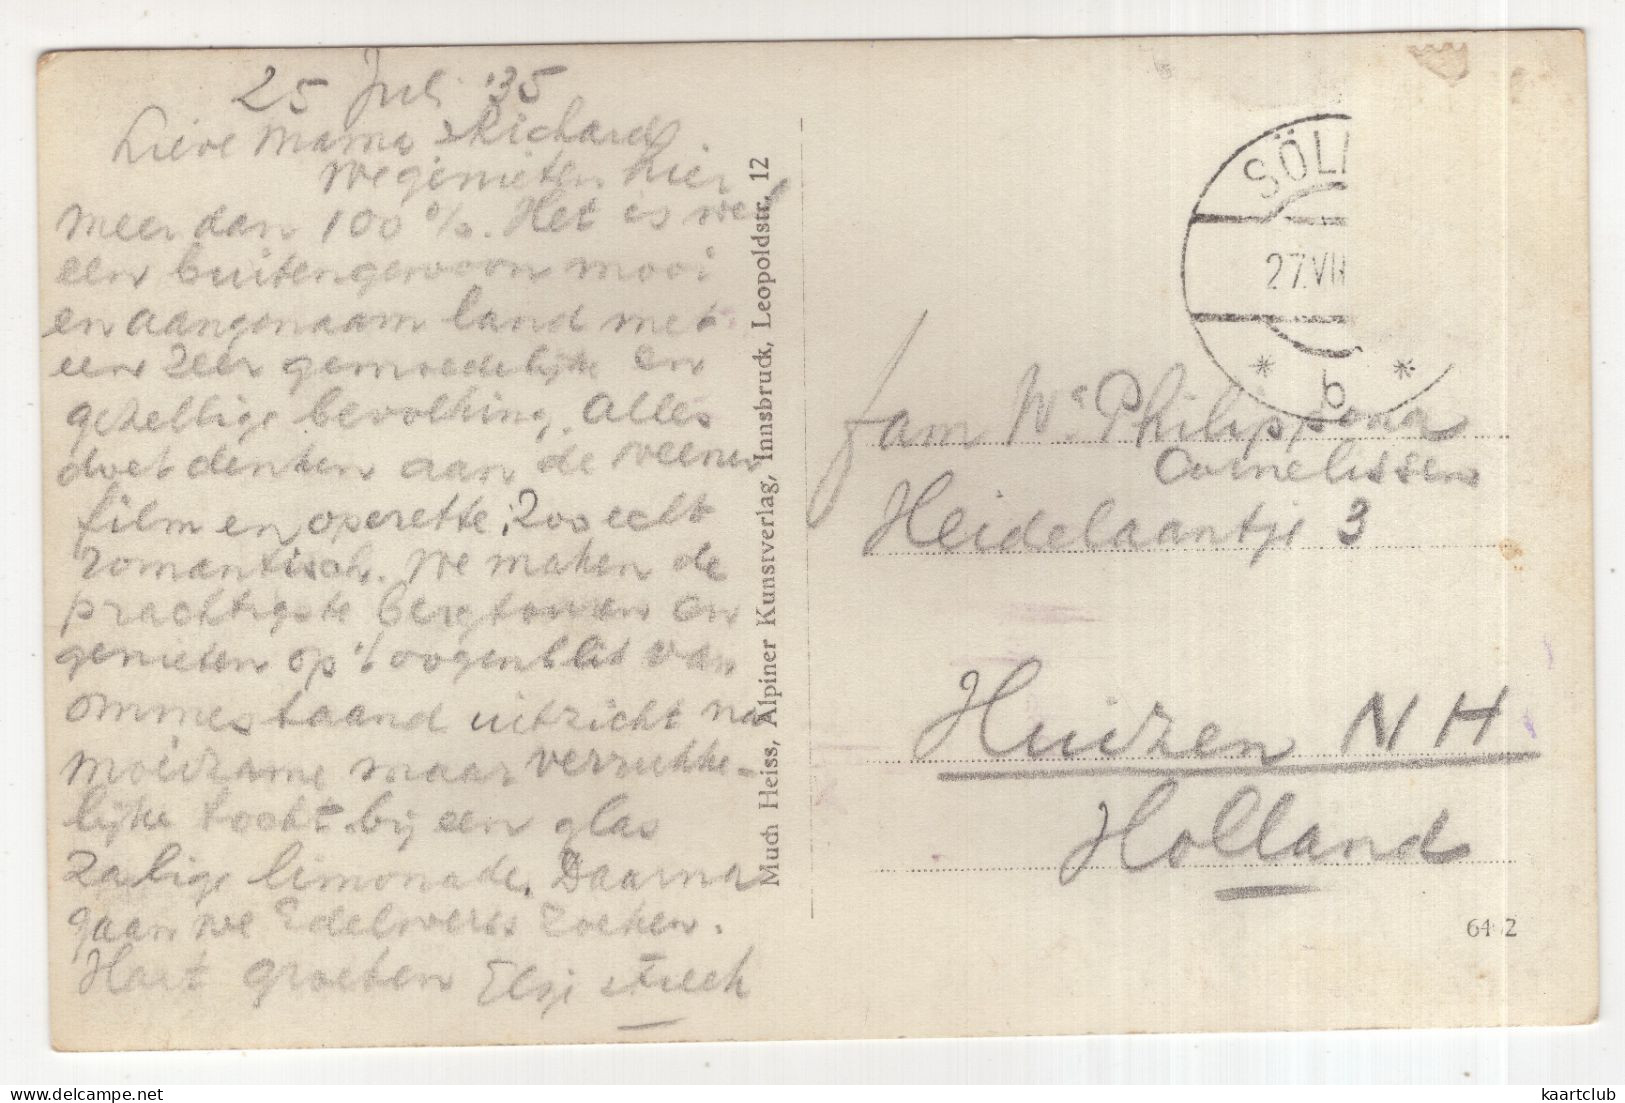 25 Juli '35
Lieve Mama & Richard
We genieten hier
meer dan 100 %. Het is wel
een buitengewoon mooi
en aangenaam land met
een zeer gemoedelijke en
gezellige bevolking. Alles
doet denken aan de weener
film en operette; zoo echt
romantisch. We maken de
prachtigste bergtouren en
genieten op 't oogenblik van
ommestaand uitzicht na
moeizame maar verrukke-
lijke tocht bij een glas
zalige limonade. Daarna
gaan we Edelweiss zoeken.
Hart groeten Elsje
Much Heiss, Alpiner Kunstverlag, Innsbruck, Leopoldstr. 12
SÖL
27.VII
* b *
fam Philippona
Cornelissen
Heidelaantje 3
Huizen NH
Holland
6402
kaartclub